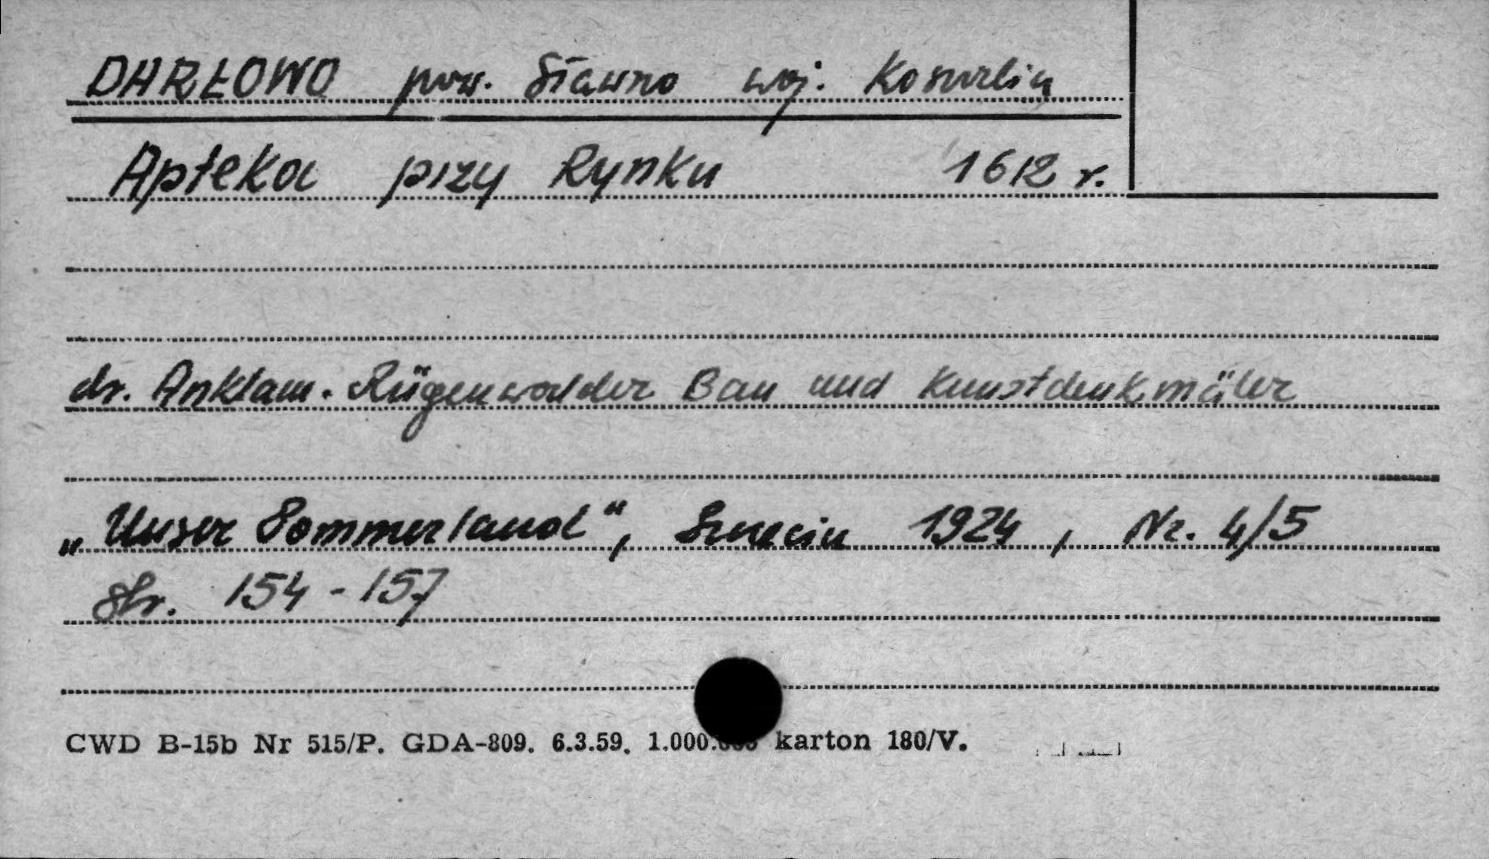 DARŁOWO pow. Sławno woj. Koszalin
Apteka przy Rynku 1612 r.
dr. Anklam. Rügenwalder Bau und Kunstdenkmäler
„Unser Pommerland", Szczecin 1924, Nr. 4/5
Str. 154-157
CWD B-15b Nr 515/P. GDA-809. 6.3.59. 1.000.000 karton 180/V.